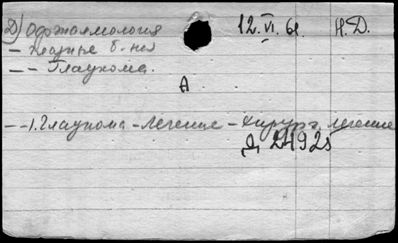 Д) Офтальмология 12.VI.61 Н.Д.
– Глазные б-ни
– – Глаукома.
А
– – 1. Глаукома – лечение – хирург. лечение
Д 24925